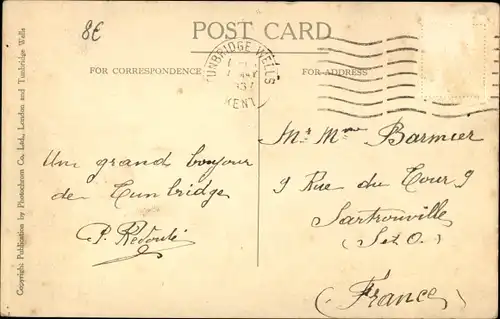 8E
POST CARD
TUNBRIDGE WELLS
KENT
FOR CORRESPONDENCE
FOR ADDRESS
Un grand bonjour
de Tunbridge
P. Redouté
Mr Mme Barmier
9 Rue du Four 9
Sartrouville
(Set O.)
(France)
Copyright Publication by Photochrom Co. Ltd., London and Tunbridge Wells